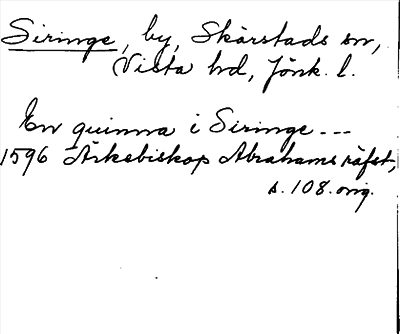 Siringe, by, Skärstads sn,
Vista hd, Jönk. l.
En quinna i Siringe ---
1596 Ärkebiskop Abrahams räfst,
s. 108. orig.